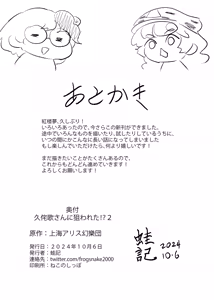 あとがき
紅楼夢、久しぶり!
いろいろあったので、今さらこの新刊ができました。
途中でいろんなものを描いたり、試したりしているうちに、
いつの間にかこんなに長い話になってしまいました
もし楽しんでいただけたら、何より嬉しいです!
まだ描きたいことがたくさんあるので、
これからもどんどん進めていきます!
よろしくお願いします!
奥付
久侘歌さんに狙われた!?2
原作:上海アリス幻樂団
発行日:2024年10月6日
発行者:蛙記
連絡先:twitter.com/frogsnake2000
印刷所:ねこのしっぽ
蛙記
2024
10.6